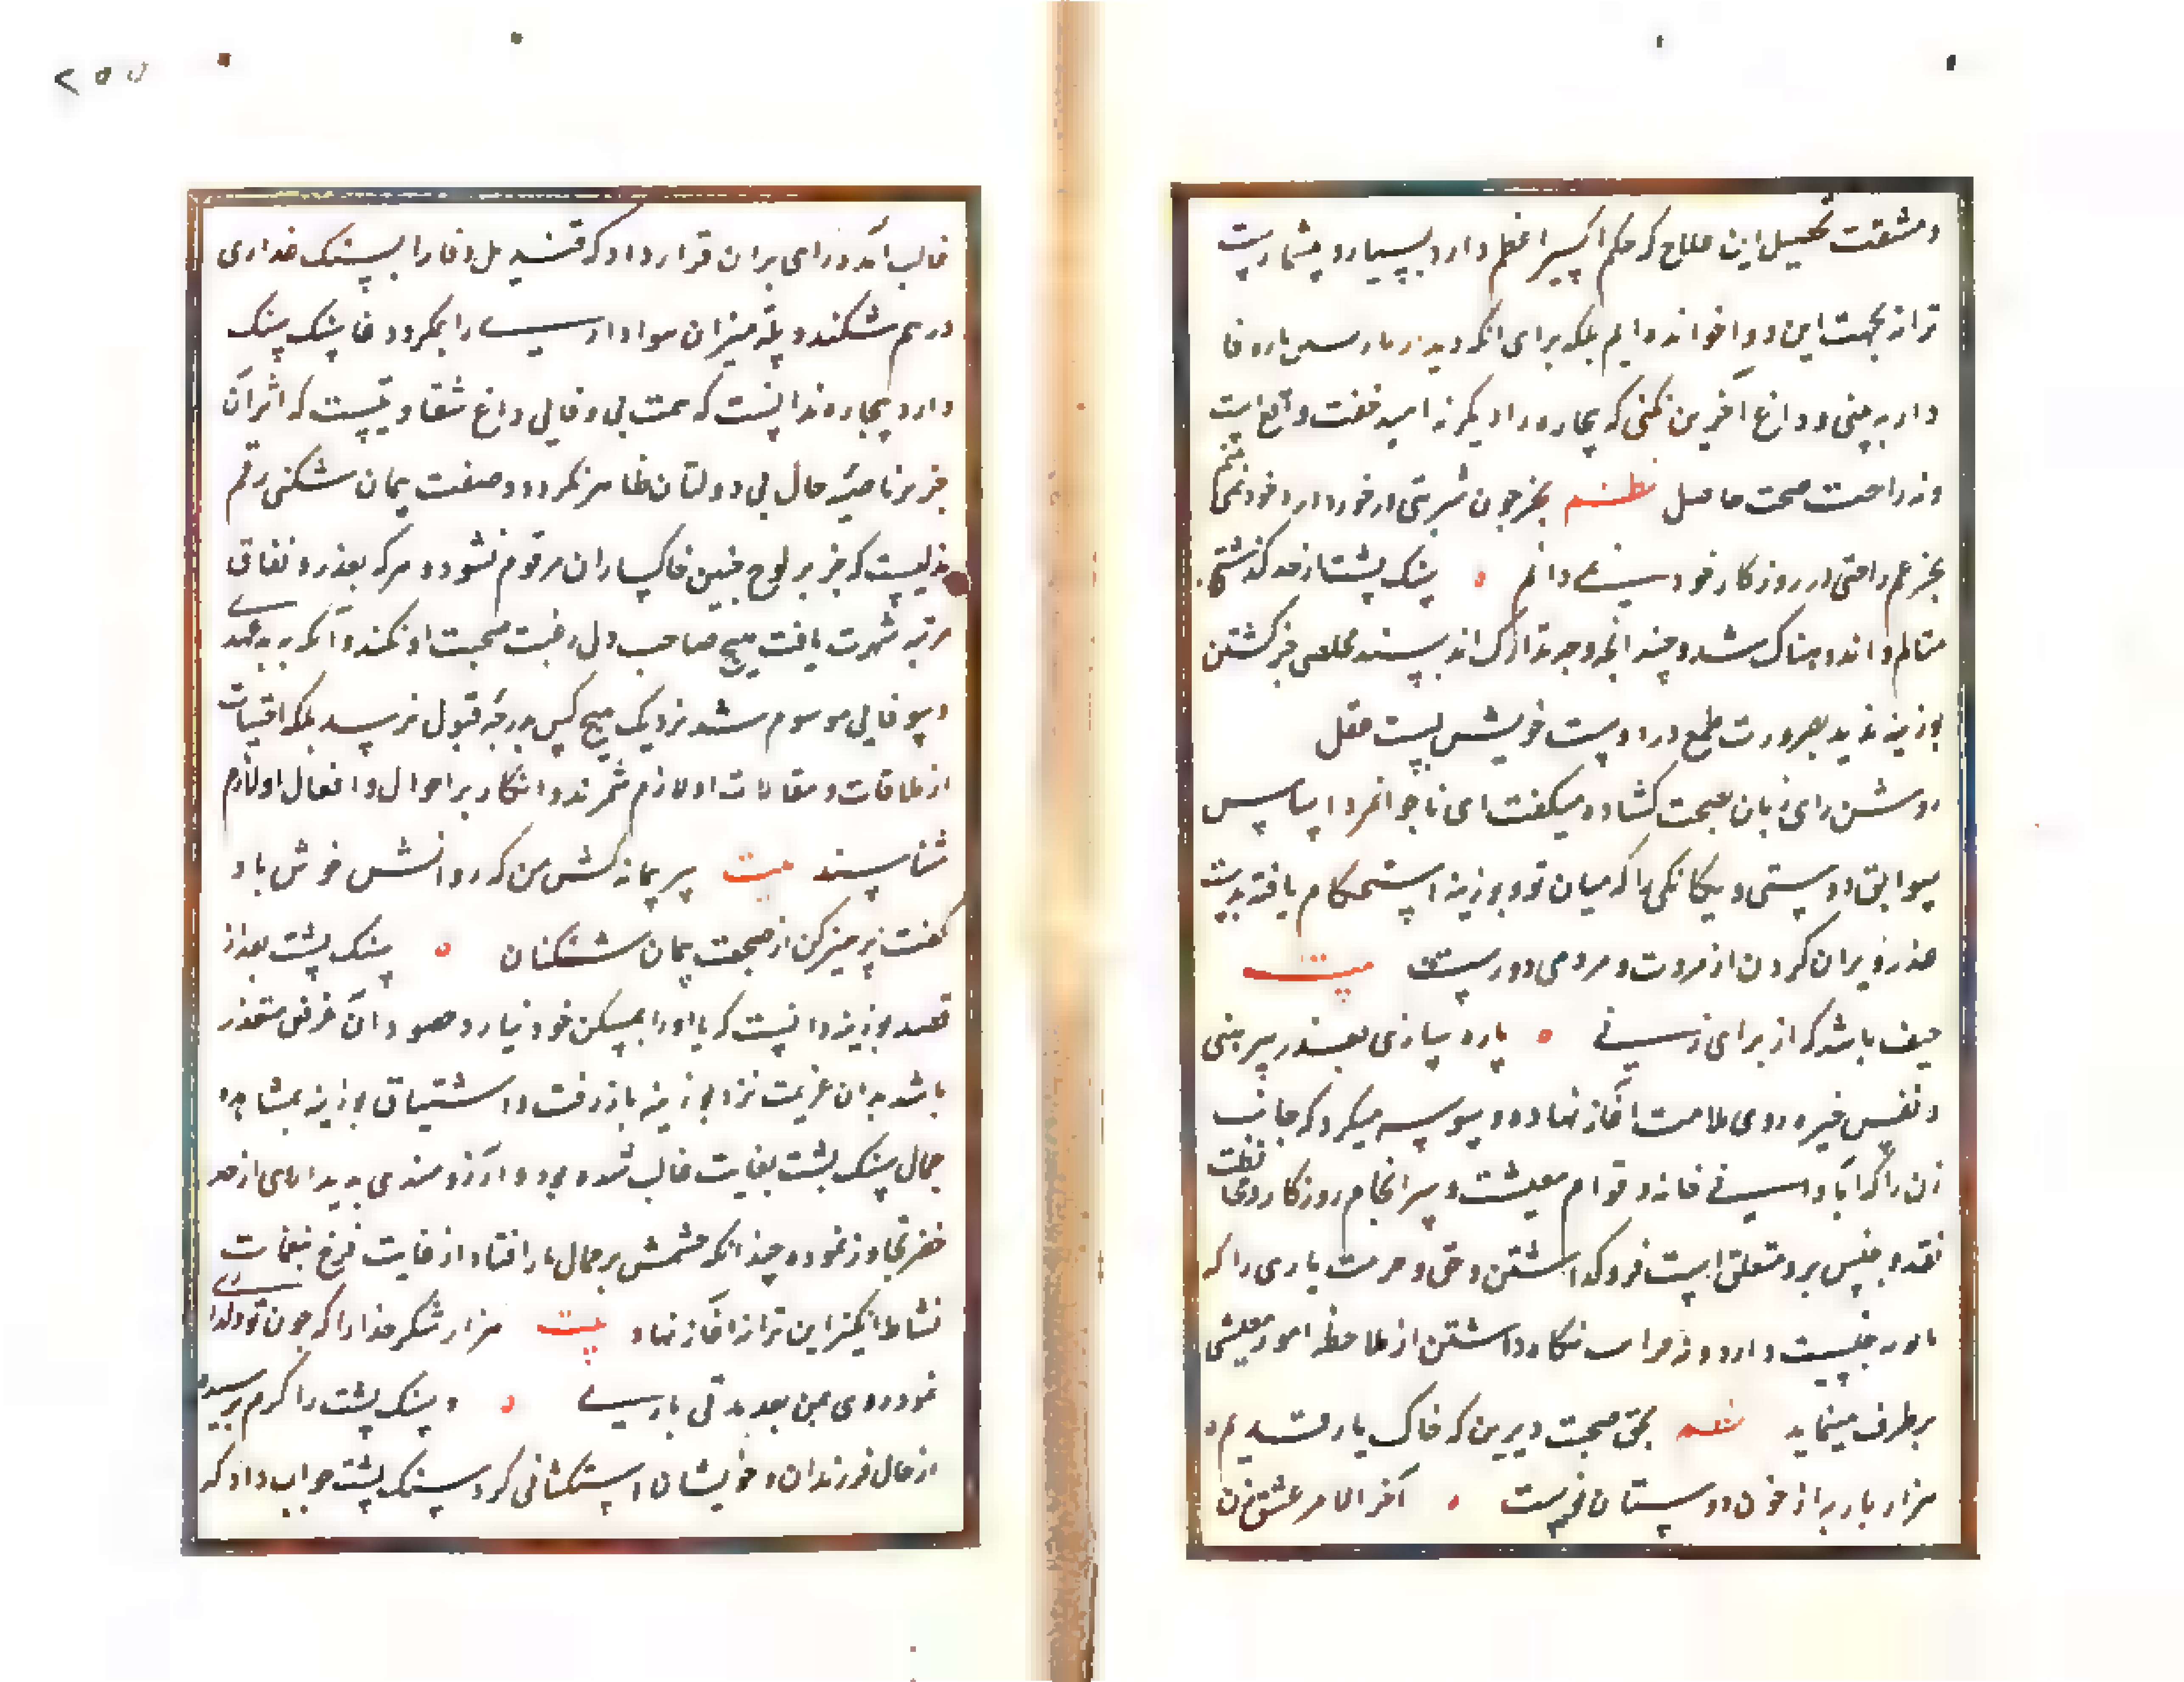 و مشقت تحصیل این علاج که حکم اکسیر اعظم دارد بسیار و بیشمارست
ترا نه بجهت این دوا خوانده ایم بلکه برای آنکه دیدار
دار به بینی و وداع آخرین کنی که بیچاره را دیگر نه امید خفت واقع است
و نه راحت صحت حاصل نظم بجز خون شربتی در خورد درد خود نمی بینم
بجز غم راحتی در روزگار خود نمی دانم سنک پشت از حد گذشته
متالم و اندوهناک شد و چندانکه وجه تدارک اندیشید مخلصی جز کشتن
بوزینه ندید بضرورت طمع در دوست خویش بست عقل
روشن رای زبان نصیحت گشاده میگفت ای ناجوانمرد اساس
سوابق دوستی و یگانگی را که میان تو و بوزینه استحکام یافته بدست
غدر ویران کردن از مروت و مردمی دورست بیت
حیف باشد که از برای زنی پاره سازی بغدر پیرهنی
و نفس خیره روی ملامت آغاز نهاده وسوسه میکرد که جانب
زن را که آبادانی خانه و قوام معیشت و سرانجام روزگار و محافظت
نقد و جنس برو متعلق است فرو گذاشتن و حق و حرمت یاری را که
نه جنسیت دارد و نه قرابت نگاه داشتن از ملاحظه امور معیشتی
برطرف مینماید شعر بحق صحبت دیرین که خاک یار قدیم
هزار بار به از خون دوستان نوست آخر الامر عشق زن
غالب آمد و رای بر آن قرار داد که قندیل وفا را بسنک غداری
درهم شکند و پله میزان هواداری را بمکر و دغا سبک سنک
دارد بیچاره ندانست که سمت بی وفایی داغ شقاوتیست که اثر آن
جز بر ناصیه حال بی دولتان ظاهر نگردد و صفت پیمان شکنی رقم
مذلتیست که جز بر لوح جبین خاکساران مرقوم نشود و هر که بغدر و نفاق
مرتبه شهرت یافت هیچ صاحب دل رغبت صحبت او نکند و آنکه به بدعهدی
و بیوفایی موسوم شد نزدیک هیچ کس بدرجه قبول نرسد بلکه اجتناب
از ملاقات و مقالات او لازم شمرند و انکار بر احوال و افعال او لازم
شناسند بیت پیر پیمانه کش من که روانش خوش باد
گفت پرهیز کن از صحبت پیمان شکنان سنک پشت بعد از
قصد بوزینه دانست که تا او را بمسکن خود نیارد حصول آن غرض متعذر
باشد بدان عزیمت نزد بوزینه باز رفت و اشتیاق بوزینه بمشاهده
جمال سنک پشت بغایت غالب شده بود و آرزومندی بدیدار وی از حد
حصر تجاوز نموده چندانکه چشمش بر جمال یار افتاد از غایت فرح بنغمات
نشاط انگیز این ترانه آغاز نهاد بیت هزار شکر خدا را که چون تو دلداری
نمود روی بمن بعد مدتی باری و سنک پشت را گرم پرسیده
از حال فرزندان و خویشان استکشافی کرد سنک پشت جواب داد که